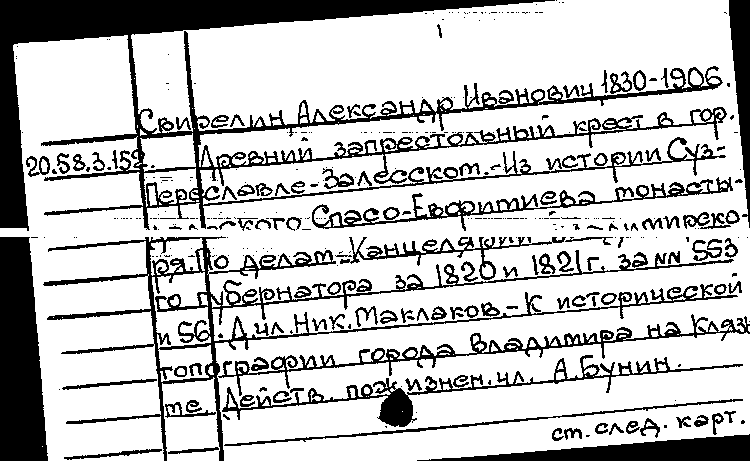 Свирелин, Александр Иванович, 1830-1906.
20.58.3.152. Древний запрестольный крест в гор.
Переславле-Залесском.-Из истории Суз-
дальского Спасо-Евфимиева монасты-
ря. По делам Канцелярии Владимирско-
го губернатора за 1820 и 1821 г. за NN 553
и 56: Д.чл. Ник. Маклаков.- К исторической
топографии города Владимира на Клязь-
ме. Действ. пожизнен. чл. А. Бунин.
см. след. карт.